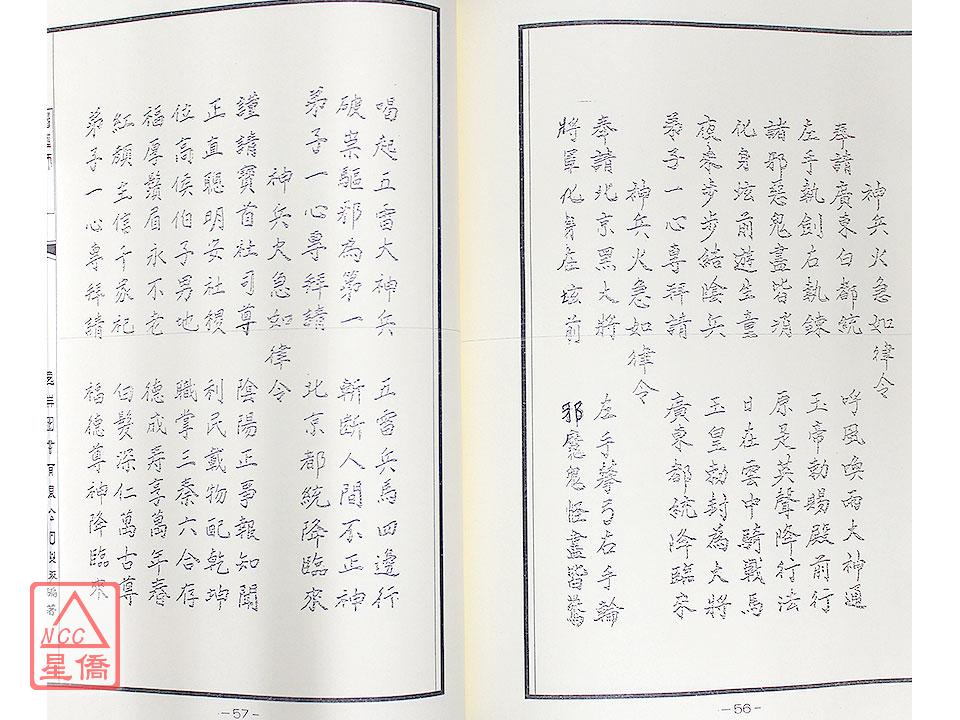 神兵火急如律令
奉請廣東白都統 呼風喚雨大神通
左手執劍右執鍊 玉帝勅賜殿前行
諸邪惡鬼盡皆消 原是英聲降行法
化身坛前遊生童 日在雲中騎戰馬
夜來步步結陰兵 玉皇勅封為大將
弟子一心專拜請 廣東都統降臨來
神兵火急如律令
奉請北京黑大將 左手拏弓右手輪
將軍化身在坛前 邪魔鬼怪盡皆驚
-56-
唱起五雷大神兵 五雷兵馬四邊行
破業驅邪為第一 斬斷人間不正神
弟子一心專拜請 北京都統降臨來
神兵火急如律令
謹請寶首社司尊 陰陽正事報知聞
正直聰明安社稷 利民載物配乾坤
位高侯伯子男地 職掌三秦六合存
福厚鬚眉永不老 德成壽享萬年春
紅顏主信千家祀 白髮深仁萬古尊
弟子一心專拜請 福德尊神降臨來
編著
-57-
NCC
星僑